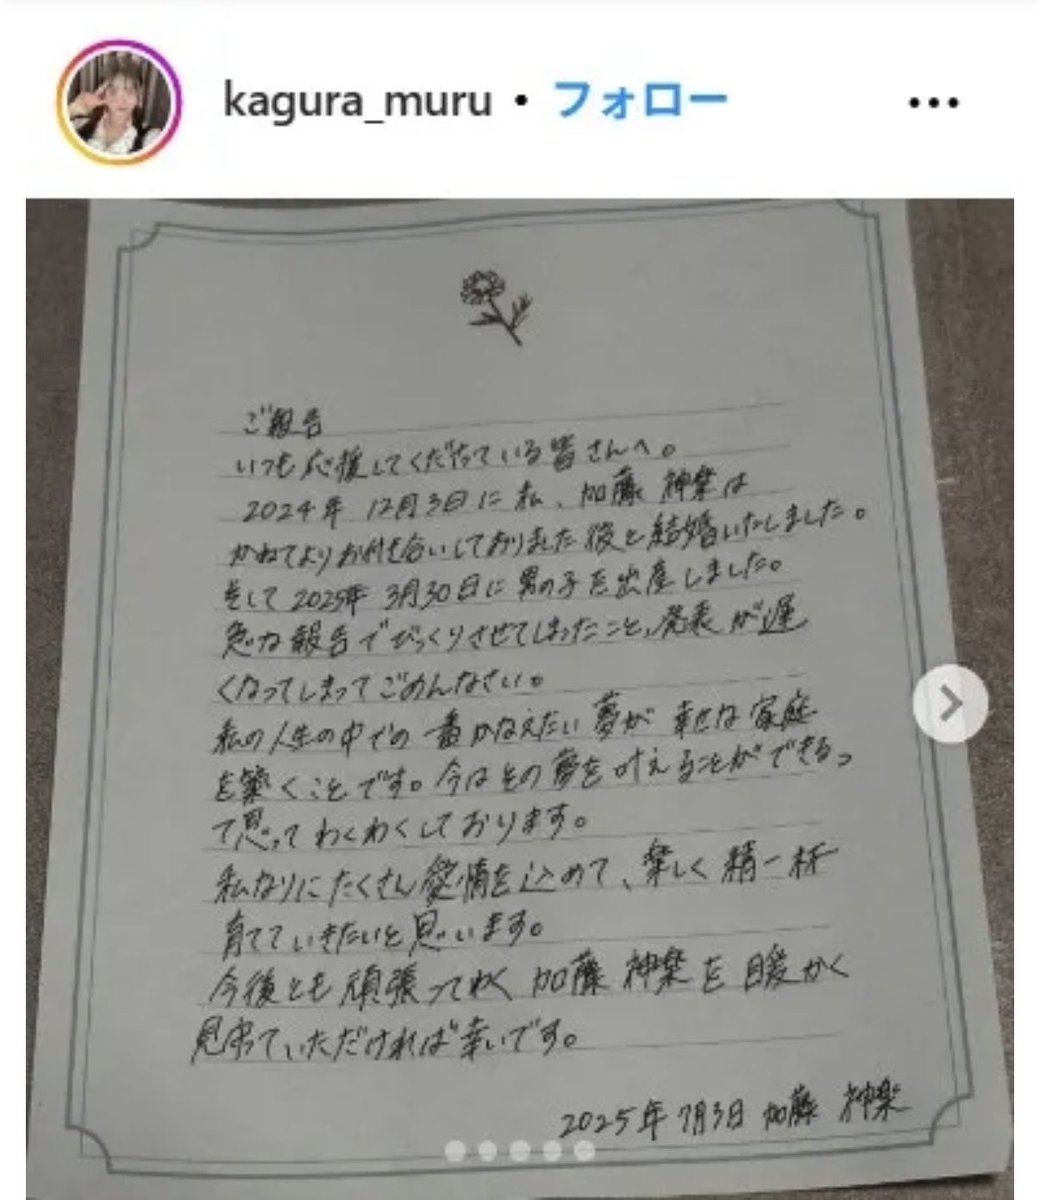 kagura_muru • フォロー
ご報告
いつも応援してくださっている皆さんへ。
2024年 12月3日に私、加藤 神楽は
かねてよりお付き合いしておりました彼と結婚いたしました。
そして 2025年 3月30日に男の子を出産しました。
急な報告でびっくりさせてしまったこと、発表が遅
くなってしまってごめんなさい。
私の人生の中での一番かなえたい夢が幸せな家庭
を築くことです。今はその夢を叶えることができるっ
て思ってわくわくしております。
私なりにたくさん愛情を込めて、楽しく精一杯
育てていきたいと思います。
今後とも頑張ってゆく 加藤 神楽を暖かく
見守っていただければ幸いです。
2025年 7月3日 加藤 神楽